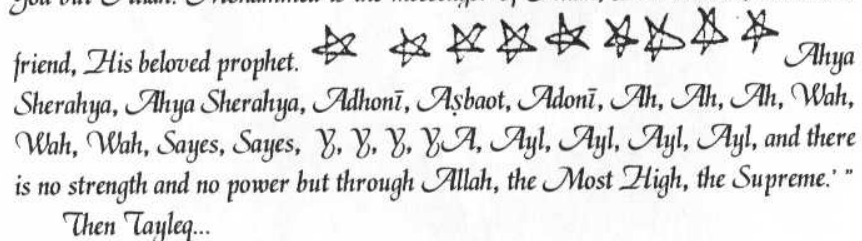 friend, His beloved prophet. Ahya
Sherahya, Ahya Sherahya, Adhonī, Aṣbaot, Adonī, Ah, Ah, Ah, Wah,
Wah, Wah, Sayes, Sayes, Y, Y, Y, YA, Ayl, Ayl, Ayl, Ayl, and there
is no strength and no power but through Allah, the Most High, the Supreme.' "
Then Tayleq...